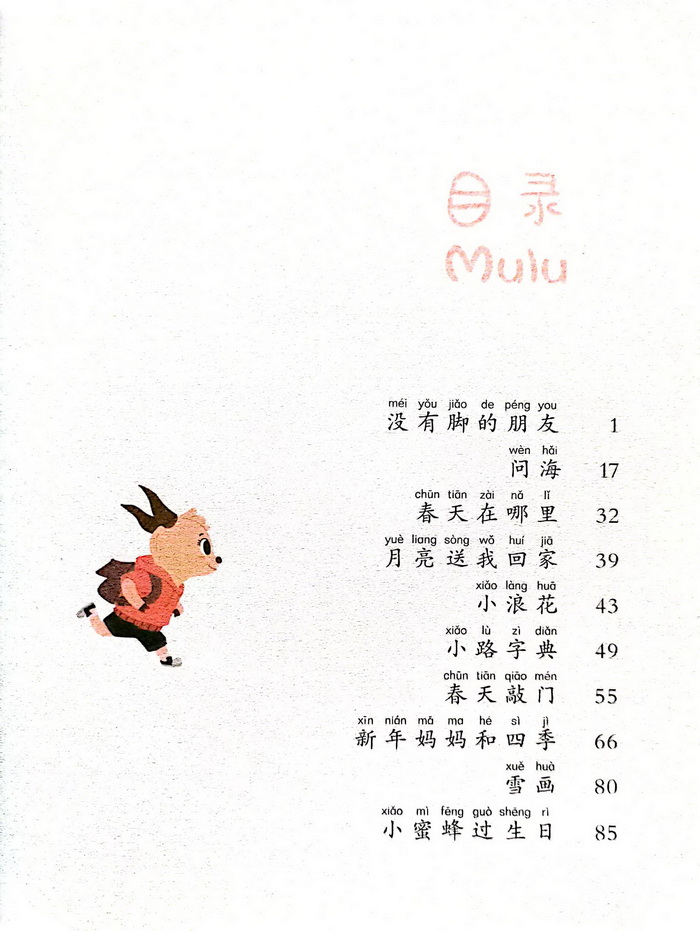 目录
Mulu
méi yǒu jiǎo de péng you
没有脚的朋友 1
wèn hǎi
问海 17
chūn tiān zài nǎ lǐ
春天在哪里 32
yuè liang sòng wǒ huí jiā
月亮送我回家 39
xiǎo làng huā
小浪花 43
xiǎo lù zì diǎn
小路字典 49
chūn tiān qiāo mén
春天敲门 55
xīn nián mā ma hé sì jì
新年妈妈和四季 66
xuě huà
雪画 80
xiǎo mì fēng guò shēng rì
小蜜蜂过生日 85